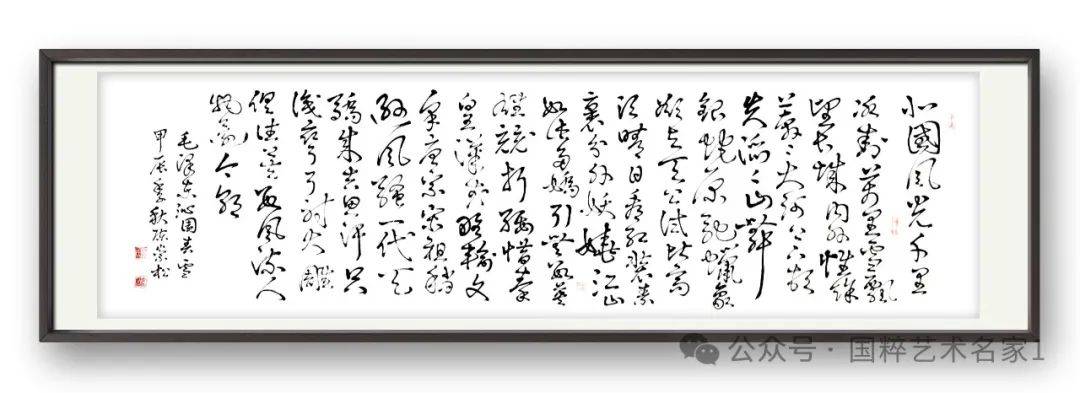 北國風光千里
冰封萬里雪飄
望长城内外惟餘
莽〻大河上下頓
失滔〻山舞
銀蛇原馳蠟象
欲与天公試比高
須晴日看紅裝素
裹分外妖嬈江山
如此多嬌引無數英
雄競折腰惜秦
皇漢武略輸文
采唐宗宋祖稍
遜風騷一代天
驕成吉思汗只
識彎弓射大鵰
俱往矣數風流人
物還看今朝
毛澤东沁园春雪
甲辰季秋陈崇松
公众号·国粹艺术名家1